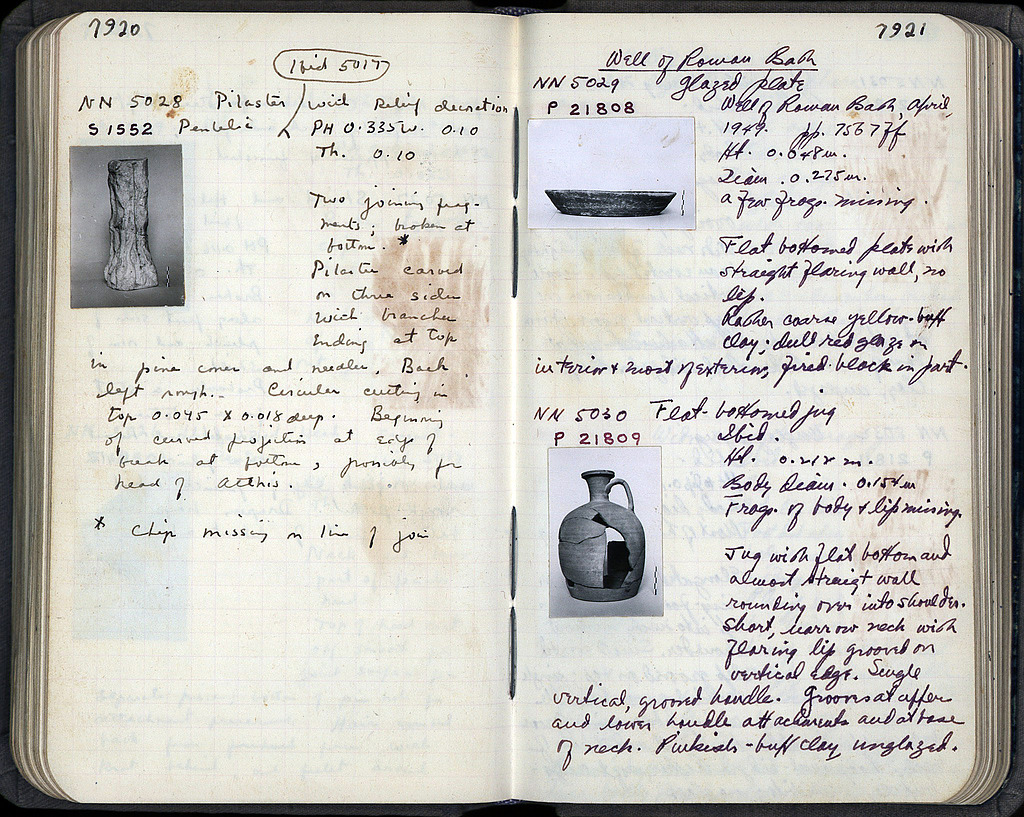 7920
Ibid 5017
NN 5028 Pilaster with relief decoration
S 1552 Pentelic PH 0.335 W. 0.10
Th. 0.10
Two joining frag-
ments; broken at
bottom. *
Pilaster carved
on three sides
with branches
ending at top
in pine cones and needles. Back
left rough. Circular cutting in
top 0.045 x 0.018 deep. Beginning
of curved projection at edge of
break at bottom, possibly for
head of Atthis.
* Chip missing on line of join
7921
Well of Roman Bath
NN 5029 Glazed plate
P 21808 Well of Roman Bath, April,
1949. pp. 7567ff
Ht. 0.048m.
Diam. 0.275m.
a few frags. missing.
Flat bottomed plate with
straight flaring wall, no
lip.
Rather coarse yellow-buff
clay; dull red glaze on
interior & most of exterior, fired black in part.
NN 5030 Flat-bottomed jug
P 21809 Ibid.
Ht. m.
Body Diam. 0.154m
Frags. of body & lip missing.
Jug with flat bottom and
almost straigt wall
rounding over into shoulder.
Short, narrow neck with
flaring lip grooved on
vertical edge. Single
vertical, grooved handle. Grooves at upper
and lower handle attachments and at base
of neck. Pinkish-buff clay unglazed.